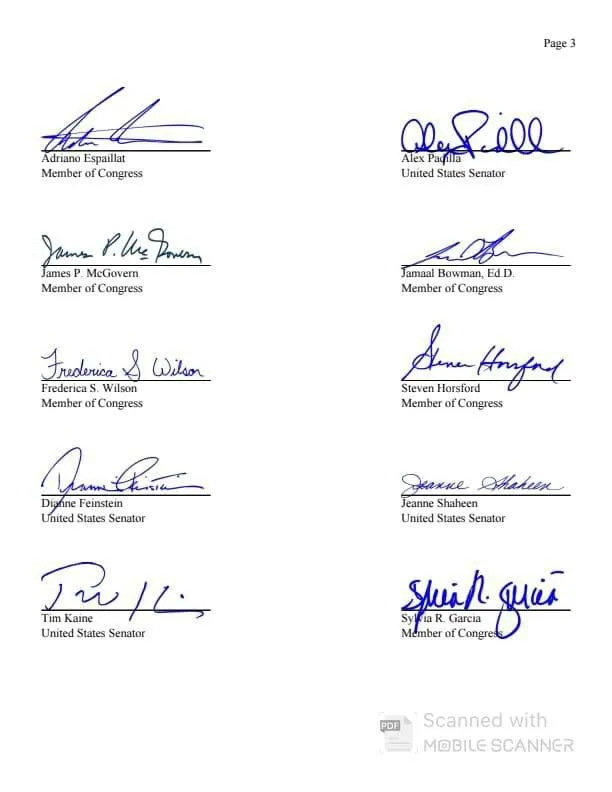 Page 3
Adriano Espaillat
Member of Congress
Alex Padilla
Alex Padilla
United States Senator
James P. McGovern
James P. McGovern
Member of Congress
Jamaal Bowman, Ed.D.
Member of Congress
Frederica S Wilson
Frederica S. Wilson
Member of Congress
Steven Horsford
Steven Horsford
Member of Congress
Dianne Feinstein
Dianne Feinstein
United States Senator
Jeanne Shaheen
Jeanne Shaheen
United States Senator
Tim Kaine
United States Senator
Sylvia R. Garcia
Sylvia R. Garcia
Member of Congress
PDF
Scanned with
MOBILE SCANNER